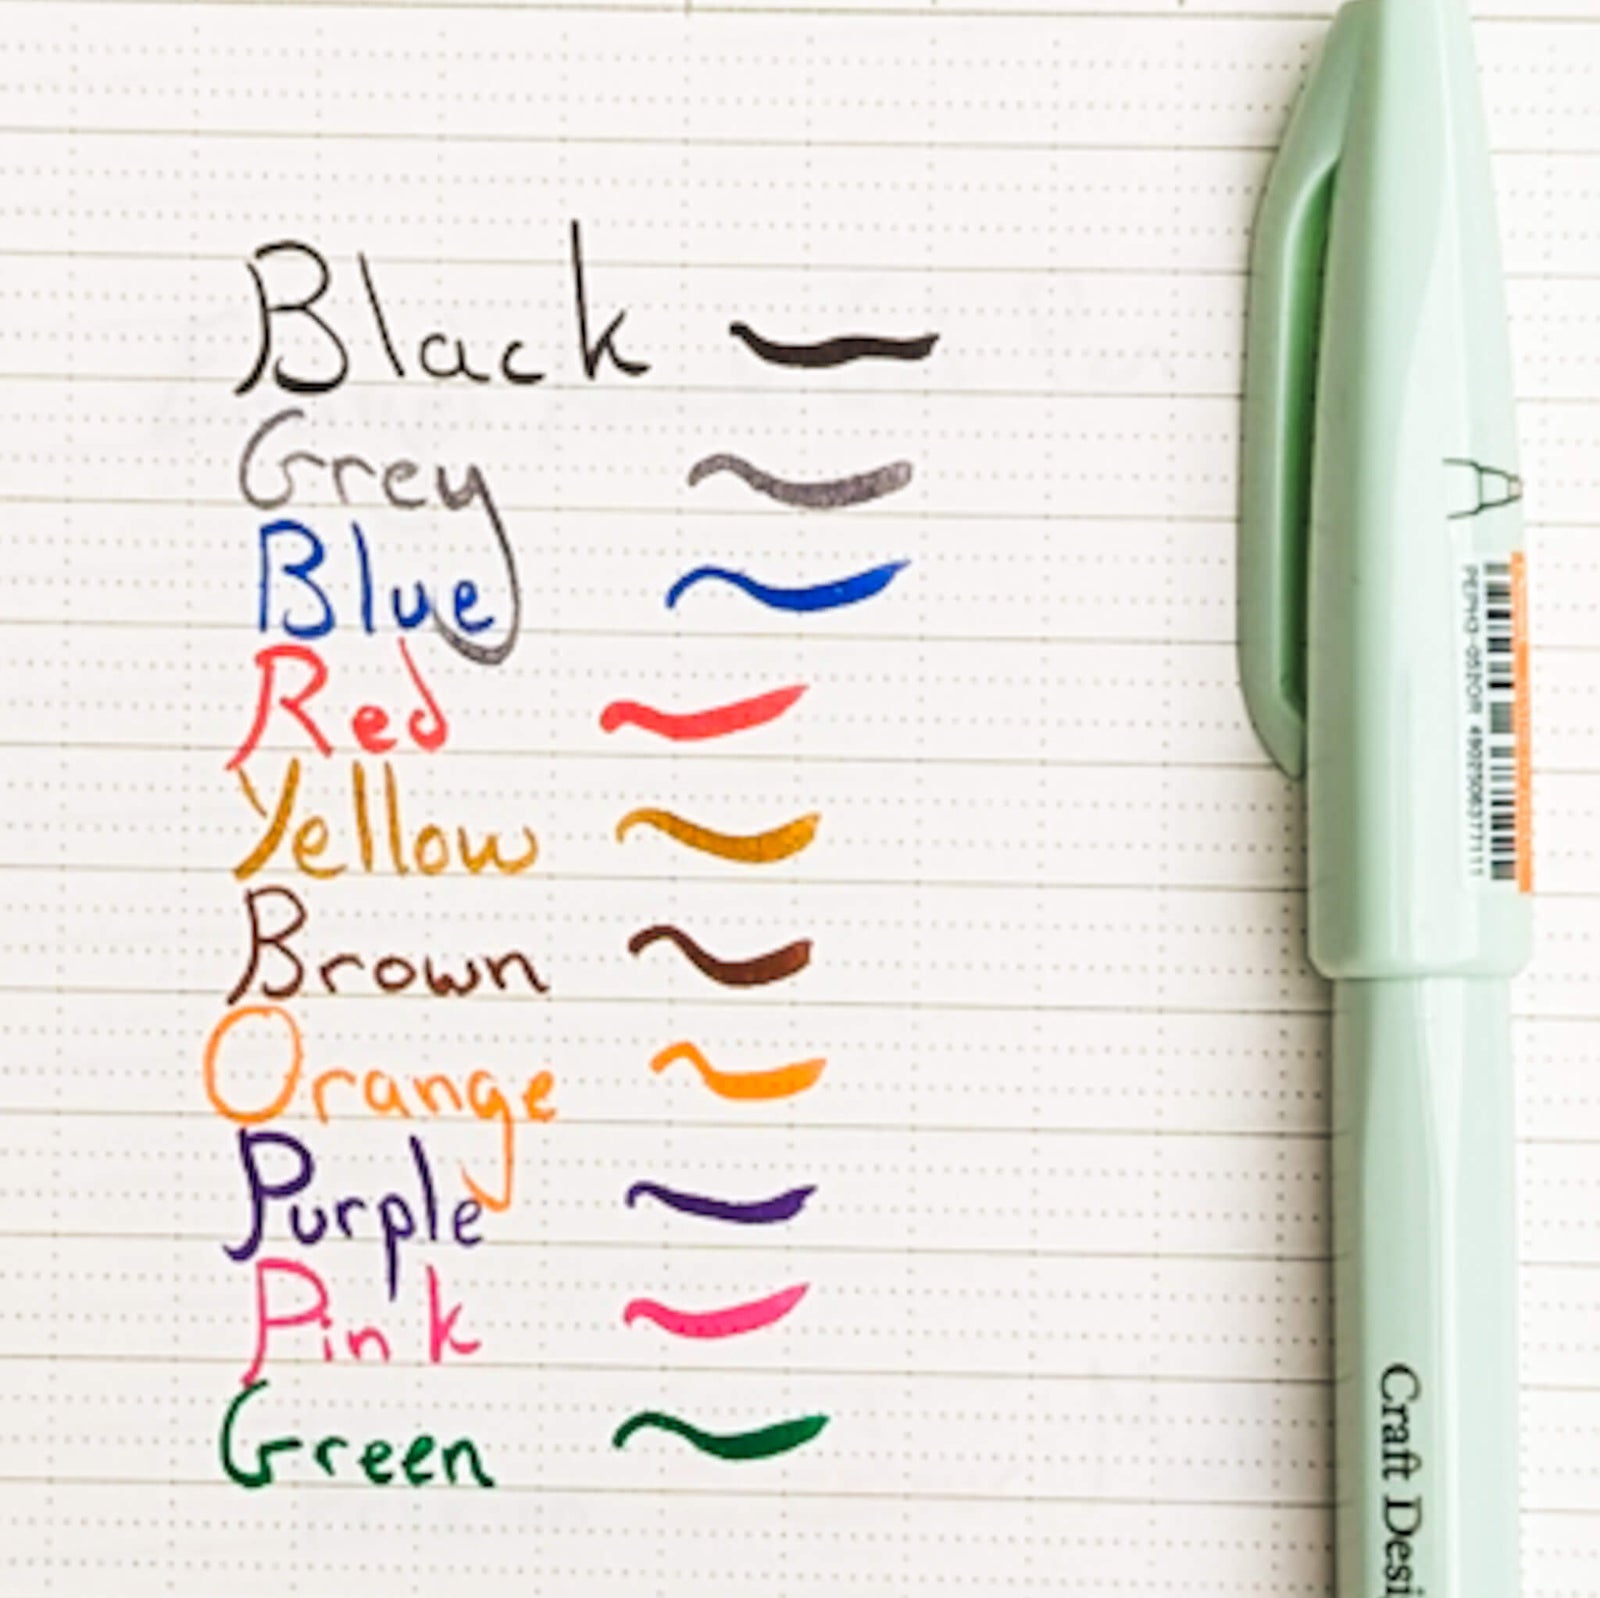 Black
Grey
Blue
Red
Yellow
Brown
Orange
Purple
Pink
Green
A
Craft Desi